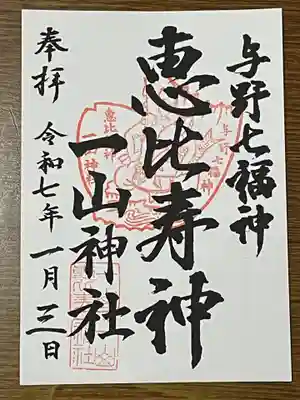 与野七福神
恵比寿神
一山神社
奉拝
令和七年一月三日
恵比寿神
与野七福神
一山神社